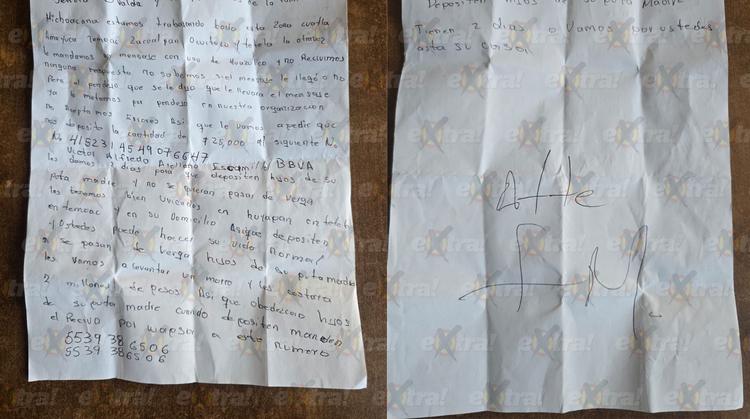 Michoacana estamos trabajando bodo esta Zona cuatla
Amayuca Temoac Zacualpan Ocuituco y tetela la otravez
le mandamos y mensase con uno de Huazulco y no Recivimos
ninguna respuesta no sabemos si el mensase le llegó o no
Pero el pendeso que se le dijo que le llevara el mensase
ya lo matamos por pendeso en nuestra organizacion
no aceptamos Errores Asi que le vamos a pedir que
nos deposito la cantidad de $25,000 al siguiente No
No 4152314549076647
Victor Alfredo Arellano BBVA
les damos dias para que depositen hijos de su
puta madre y no se quieran pasar de verga
los tenemos bien uvicados en huyapan en tetela
en temoac y en su Domicilio Asique depositen
y Ustedes puede haccer su vida normal
si se pasan de verga hijos de su puta madre
les vamos a levantar un morro y les costara
2 millones de pesos. Asi que obedezcan hijos
de su puta madre cuando depositen manden
el Recivo por wapsar a este numero
5539 38 6506
5539 386506
Depositen hijos de su puta Madre
Tienen 2 dias o Vamos por ustedes
asta su casa
Atte
F M
extra!